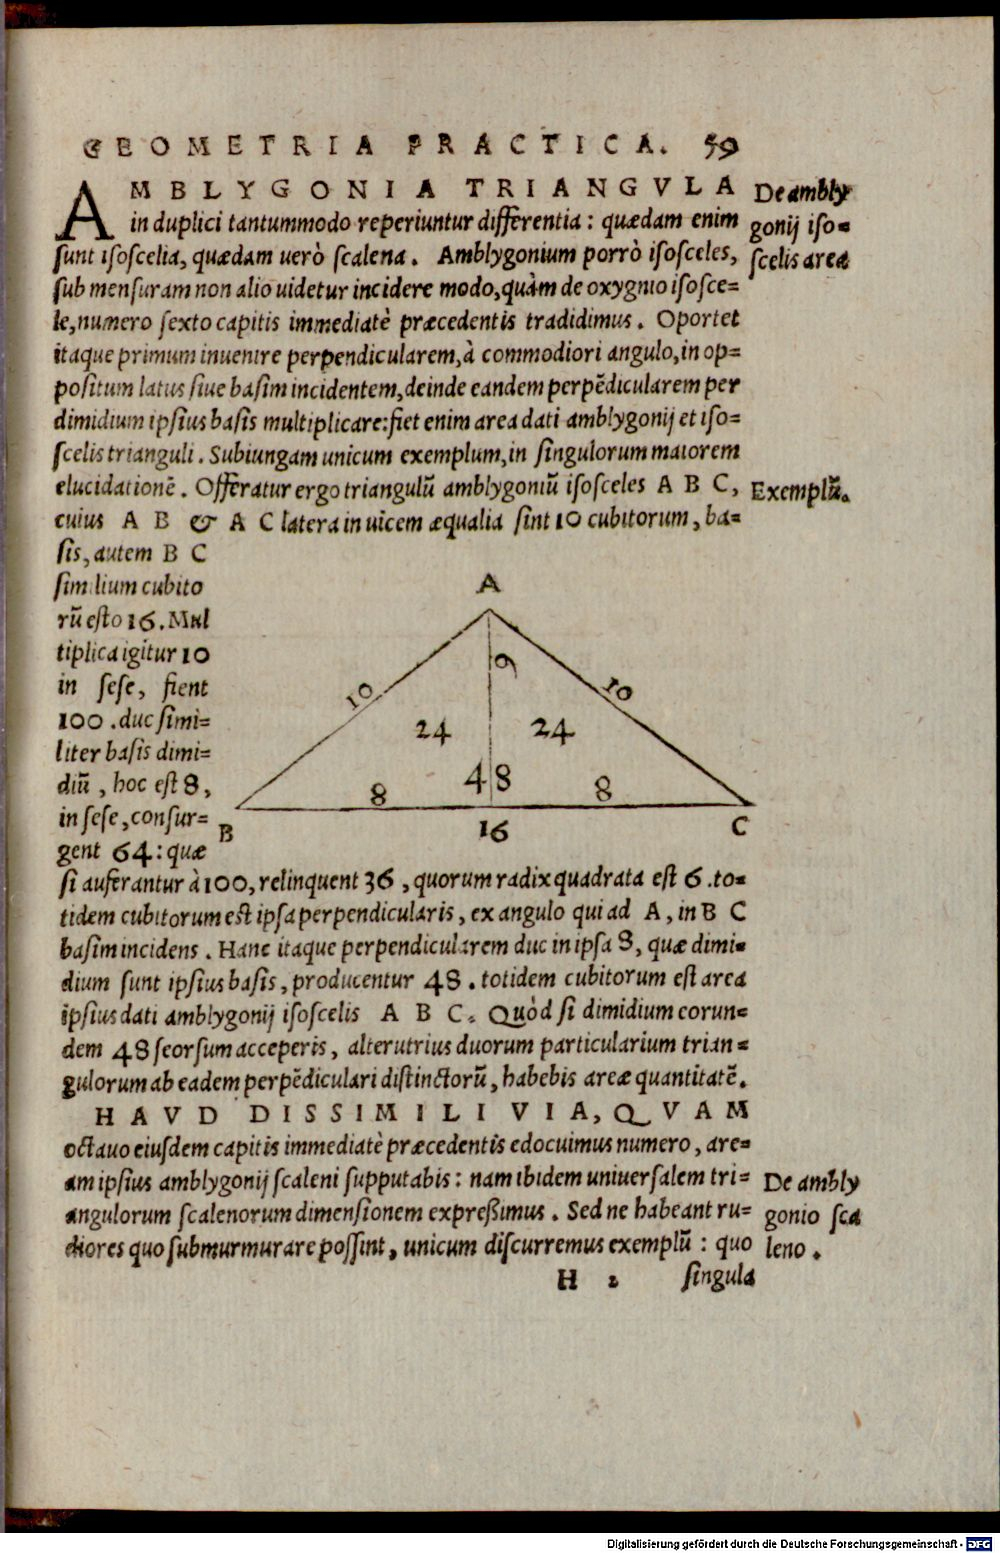 GEOMETRIA PRACTICA. 59
AMBLYGONIA TRIANGVLA
in duplici tantummodo reperiuntur differentia: quædam enim
sunt isoscelia, quædam uerò scalena. Amblygonium porrò isosceles,
sub mensuram non alio uidetur incidere modo, quàm de oxygnio isosce=
le, numero sexto capitis immediatè præcedentis tradidimus. Oportet
itaque primum inuenire perpendicularem, à commodiori angulo, in op=
positum latus siue basim incidentem, deinde eandem perpẽdicularem per
dimidium ipsius basis multiplicare: fiet enim area dati amblygonij et iso=
scelis trianguli. Subiungam unicum exemplum, in singulorum maiorem
elucidationẽ. Offeratur ergo triangulũ amblygoniũ isosceles A B C,
cuius A B & A C latera inuicem æqualia sint 10 cubitorum, ba=
sis, autem B C
similium cubito
rũ esto 16. Mul
tiplica igitur 10
in sese, fient
100. duc simi=
liter basis dimi=
diũ, hoc est 8,
in sese, consur=
gent 64: quæ
si auferantur à 100, relinquent 36, quorum radix quadrata est 6. to=
tidem cubitorum est ipsa perpendicularis, ex angulo qui ad A, in B C
basim incidens. Hanc itaque perpendicularem duc in ipsa 8, quæ dimi=
dium sunt ipsius basis, producentur 48. totidem cubitorum est area
ipsius dati amblygonij isoscelis A B C. Quòd si dimidium eorun=
dem 48 seorsum acceperis, alterutrius duorum particularium trian=
gulorum ab eadem perpẽdiculari distinctorũ, habebis areæ quantitatẽ.
HAVD DISSIMILI VIA, QVAM
octauo eiusdem capitis immediatè præcedentis edocuimus numero, are=
am ipsius amblygonij scaleni supputabis: nam ibidem uniuersalem tri=
angulorum scalenorum dimensionem expreßimus. Sed ne habeant ru=
diores quo submurmurare possint, unicum discurremus exemplũ: quo
H 2 singula
De ambly
gonij iso=
scelis area
Exemplũ.
De ambly
gonio sca
leno.
A
10 6 10
24 24
48
8 8
B 16 C
Digitalisierung gefördert durch die Deutsche Forschungsgemeinschaft - DFG